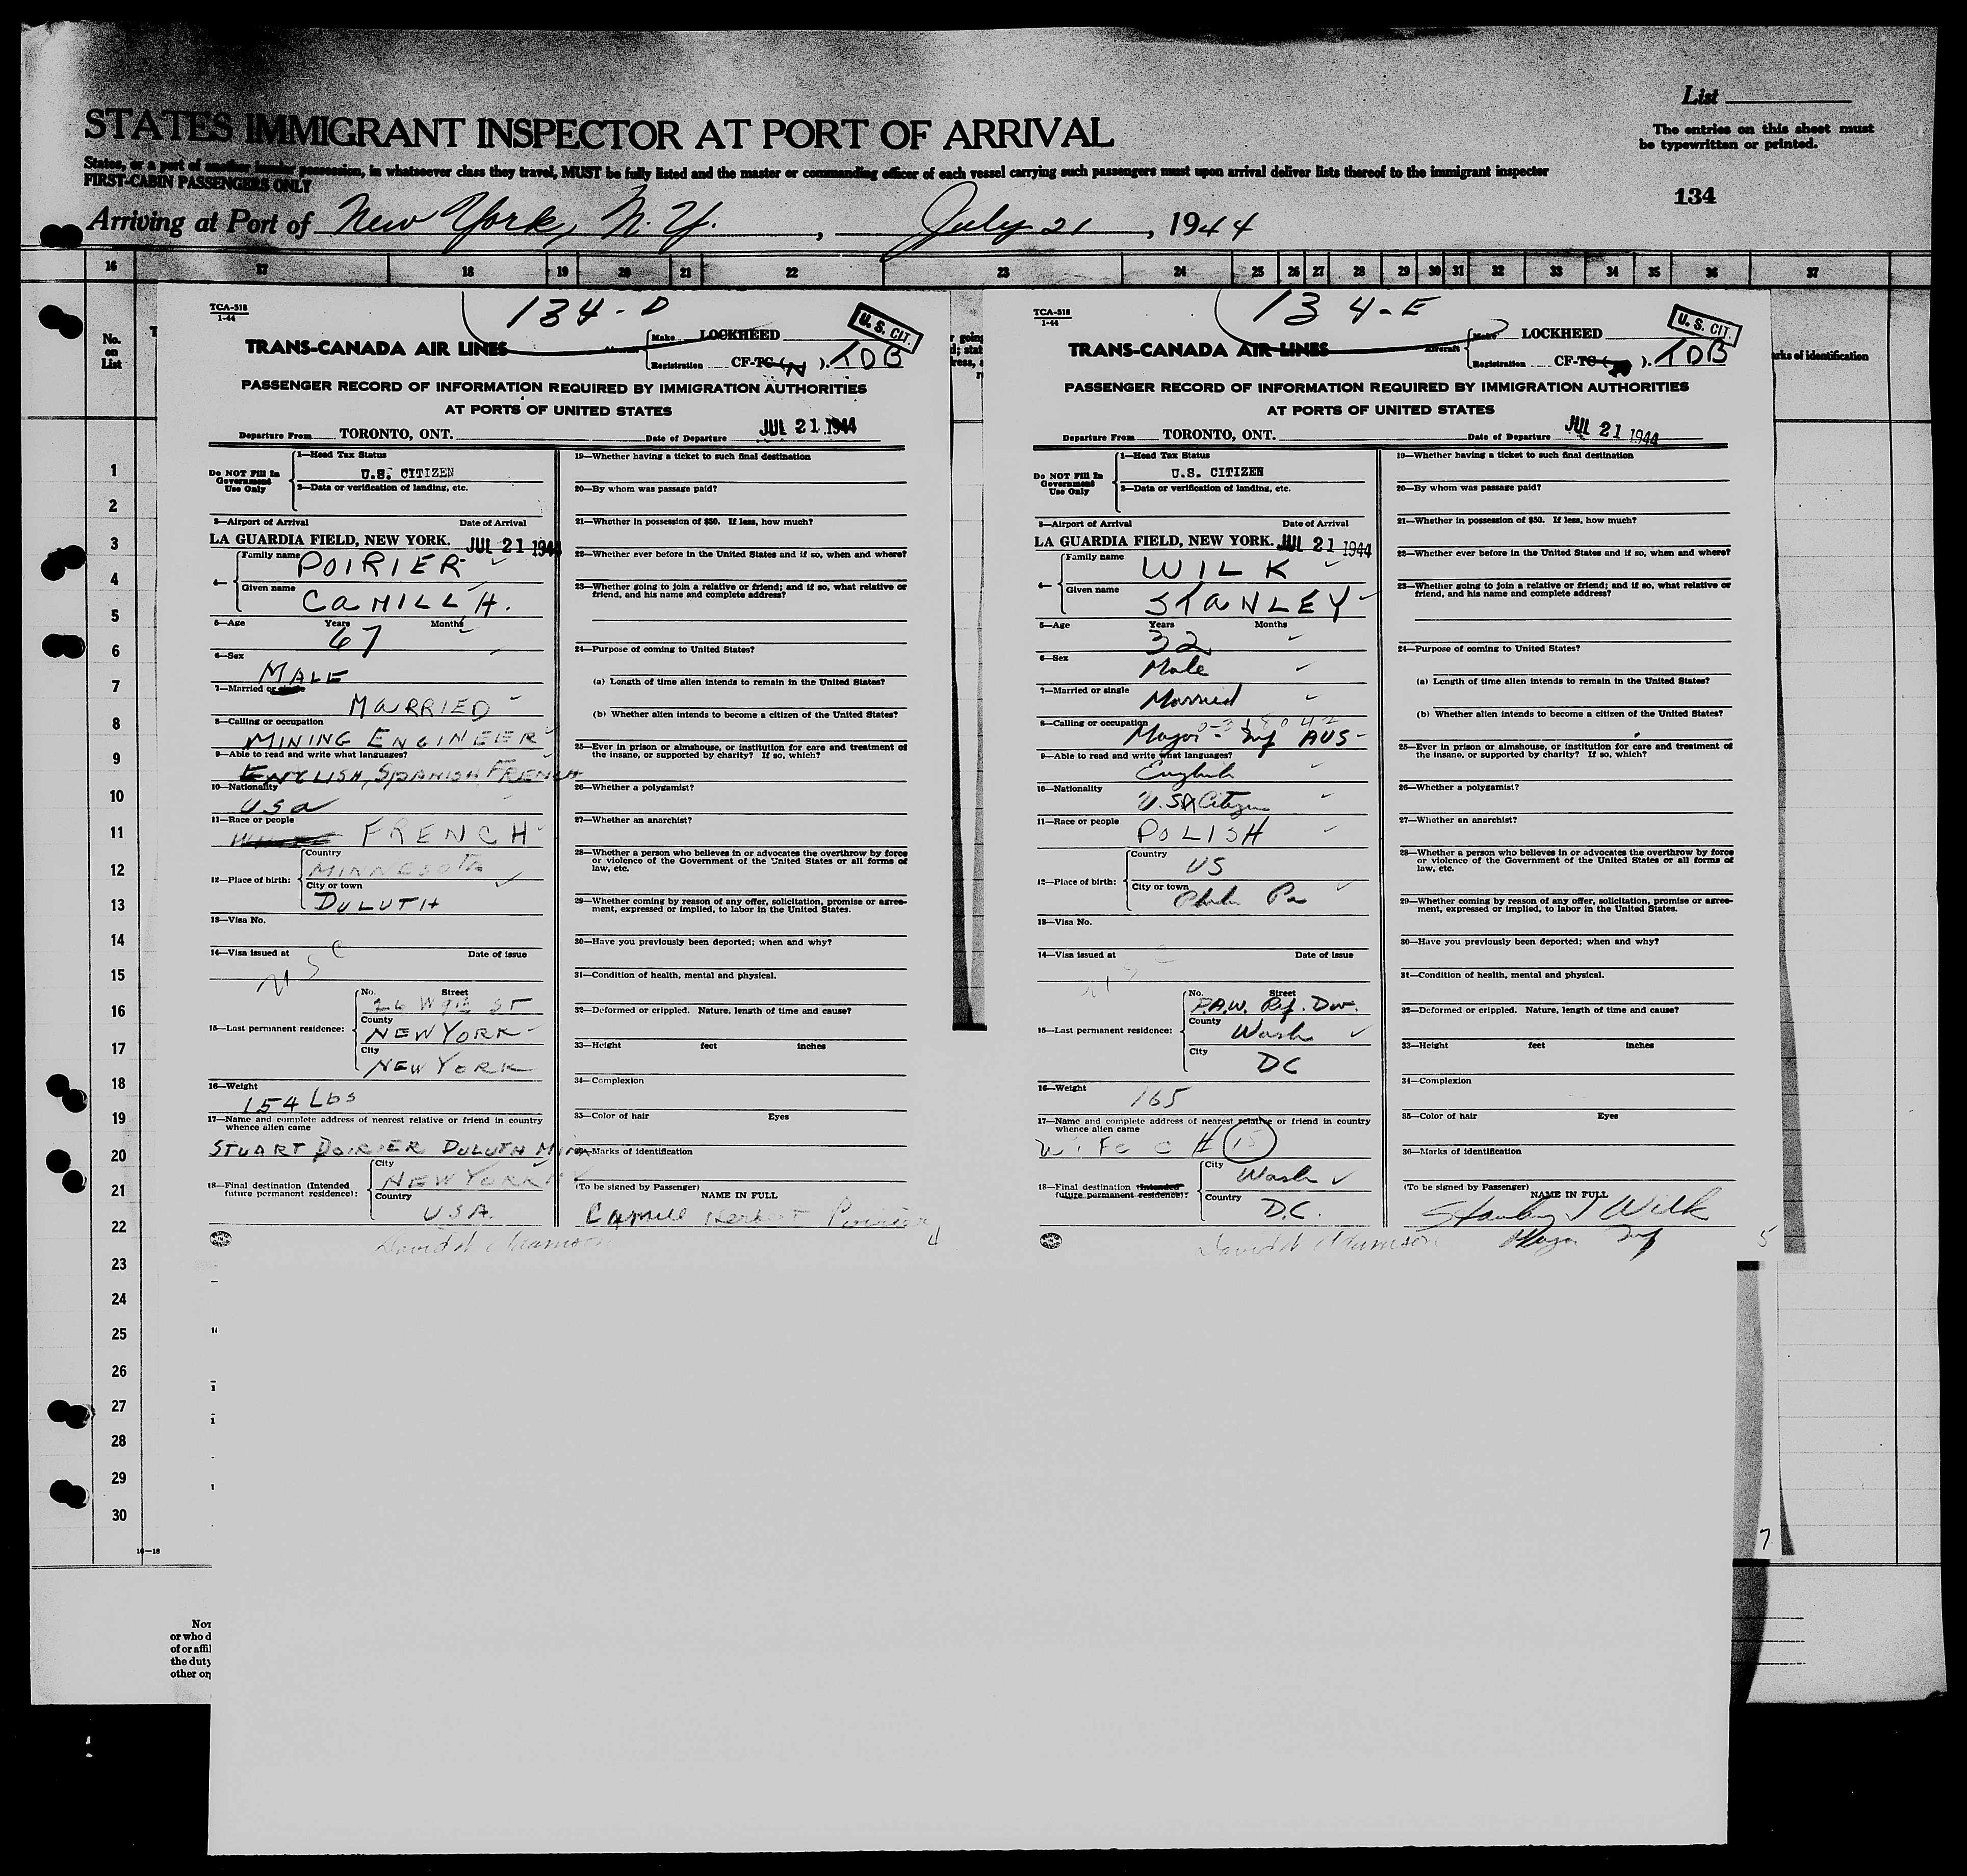 List
STATES IMMIGRANT INSPECTOR AT PORT OF ARRIVAL
The entries on this sheet must
be typewritten or printed.
States, or a port of another insular possession, in whatsoever class they travel, MUST be fully listed and the master or commanding officer of each vessel carrying such passengers must upon arrival deliver lists thereof to the immigrant inspector
FIRST-CABIN PASSENGERS ONLY
134
Arriving at Port of New York, N. Y., July 21, 1944
16 17 18 19 20 21 22 23 24 25 26 27 28 29 30 31 32 33 34 35 36 37
No.
on
List
1
2
3
4
5
6
7
8
9
10
11
12
13
14
15
16
17
18
19
20
21
22
23
24
25
26
27
28
29
30
TCA-518
1-44
134-D
U. S. CIT.
TRANS-CANADA AIR LINES
Aircraft
Make LOCKHEED
Registration CF-TC (N). TDB
PASSENGER RECORD OF INFORMATION REQUIRED BY IMMIGRATION AUTHORITIES
AT PORTS OF UNITED STATES
Departure From TORONTO, ONT. Date of Departure JUL 21 1944
Do NOT Fill In
Government
Use Only
1—Head Tax Status
U.S. CITIZEN
2—Data or verification of landing, etc.
3—Airport of Arrival Date of Arrival
LA GUARDIA FIELD, NEW YORK. JUL 21 1944
4—
Family name POIRIER
Given name CaMILL H.
5—Age Years Months
67
6—Sex
MALE
7—Married or single
MaRRIED
8—Calling or occupation
MINING ENGINEER
9—Able to read and write what languages?
ENGLISH, SPANISH, FRENCH
10—Nationality
USa
11—Race or people
FRENCH
12—Place of birth:
Country
MINNESOTa
City or town
DULUTH
13—Visa No.
14—Visa issued at Date of issue
U S C
15—Last permanent residence:
No. Street
26 W 9th ST
County
NEW YORK
City
NEW YORK
16—Weight
154 Lbs
17—Name and complete address of nearest relative or friend in country
whence alien came
STUART POIRIER DULUTH MINN
18—Final destination (Intended
future permanent residence):
City
NEW YORK N Y
Country
USA.
19—Whether having a ticket to such final destination
20—By whom was passage paid?
21—Whether in possession of $50. If less, how much?
22—Whether ever before in the United States and if so, when and where?
23—Whether going to join a relative or friend; and if so, what relative or
friend, and his name and complete address?
24—Purpose of coming to United States?
(a) Length of time alien intends to remain in the United States?
(b) Whether alien intends to become a citizen of the United States?
25—Ever in prison or almshouse, or institution for care and treatment of
the insane, or supported by charity? If so, which?
26—Whether a polygamist?
27—Whether an anarchist?
28—Whether a person who believes in or advocates the overthrow by force
or violence of the Government of the United States or all forms of
law, etc.
29—Whether coming by reason of any offer, solicitation, promise or agree-
ment, expressed or implied, to labor in the United States.
30—Have you previously been deported; when and why?
31—Condition of health, mental and physical.
32—Deformed or crippled. Nature, length of time and cause?
33—Height feet inches
34—Complexion
35—Color of hair Eyes
36—Marks of identification
(To be signed by Passenger)
NAME IN FULL
Camill Herbert Poirier
4
TCA-518
1-44
134-E
U. S. CIT.
TRANS-CANADA AIR LINES
Aircraft
Make LOCKHEED
Registration CF-TC ( ). TDB
PASSENGER RECORD OF INFORMATION REQUIRED BY IMMIGRATION AUTHORITIES
AT PORTS OF UNITED STATES
Departure From TORONTO, ONT. Date of Departure JUL 21 1944
Do NOT Fill In
Government
Use Only
1—Head Tax Status
U.S. CITIZEN
2—Data or verification of landing, etc.
3—Airport of Arrival Date of Arrival
LA GUARDIA FIELD, NEW YORK. JUL 21 1944
4—
Family name WILK
Given name STaNLEY
5—Age Years Months
32
6—Sex
Male
7—Married or single
Married
8—Calling or occupation
Major - Inf AUS
9—Able to read and write what languages?
English
10—Nationality
U.SA Citizen
11—Race or people
POLISH
12—Place of birth:
Country
US
City or town
Phila Pa
13—Visa No.
14—Visa issued at Date of issue
U S C
15—Last permanent residence:
No. Street
P.A.W. Ref. Div.
County
Wash
City
DC
16—Weight
165
17—Name and complete address of nearest relative or friend in country
whence alien came
Wife C # 15
18—Final destination (Intended
future permanent residence):
City
Wash
Country
D.C.
19—Whether having a ticket to such final destination
20—By whom was passage paid?
21—Whether in possession of $50. If less, how much?
22—Whether ever before in the United States and if so, when and where?
23—Whether going to join a relative or friend; and if so, what relative or
friend, and his name and complete address?
24—Purpose of coming to United States?
(a) Length of time alien intends to remain in the United States?
(b) Whether alien intends to become a citizen of the United States?
25—Ever in prison or almshouse, or institution for care and treatment of
the insane, or supported by charity? If so, which?
26—Whether a polygamist?
27—Whether an anarchist?
28—Whether a person who believes in or advocates the overthrow by force
or violence of the Government of the United States or all forms of
law, etc.
29—Whether coming by reason of any offer, solicitation, promise or agree-
ment, expressed or implied, to labor in the United States.
30—Have you previously been deported; when and why?
31—Condition of health, mental and physical.
32—Deformed or crippled. Nature, length of time and cause?
33—Height feet inches
34—Complexion
35—Color of hair Eyes
36—Marks of identification
(To be signed by Passenger)
NAME IN FULL
Stanley J Wilk
Major Inf
5
David H Adamson
David H Adamson
arks of identification
7
16—18
or who d
of or affil
the duty
other on